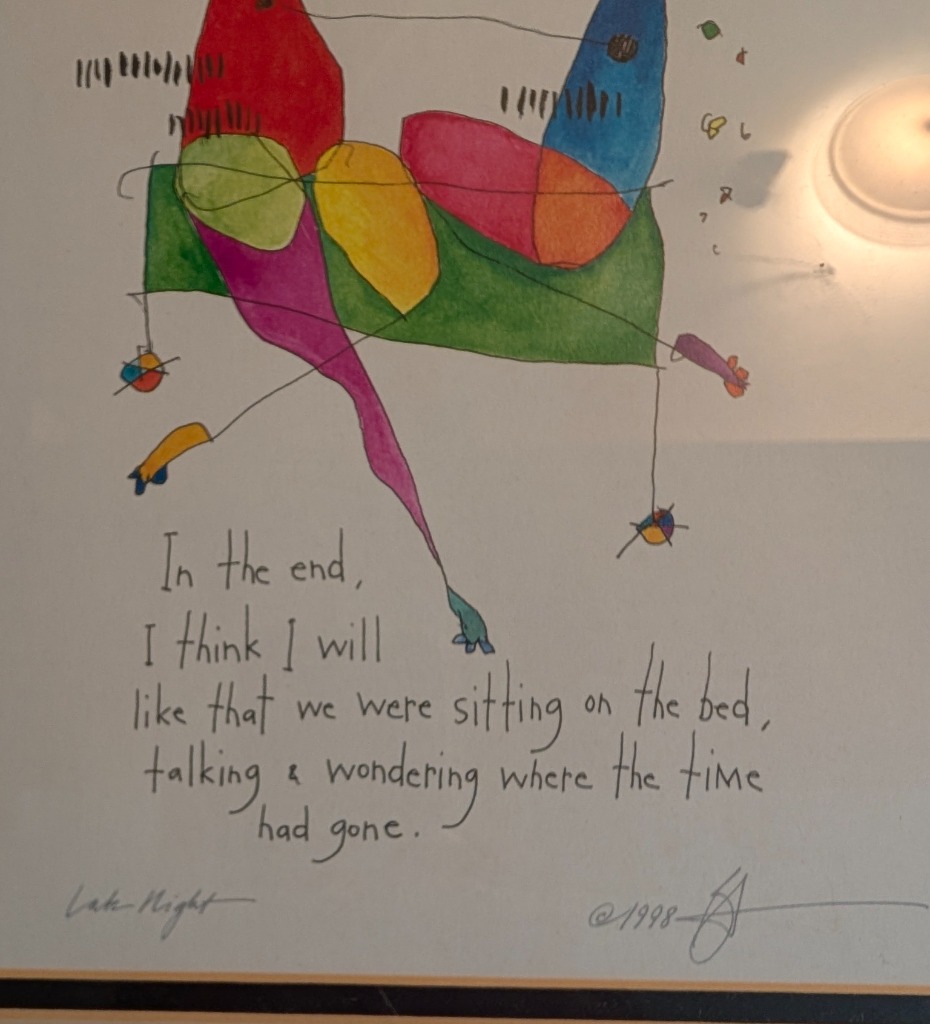 In the end,
I think I will
like that we were sitting on the bed,
talking & wondering where the time
had gone.
Late Night
©1998